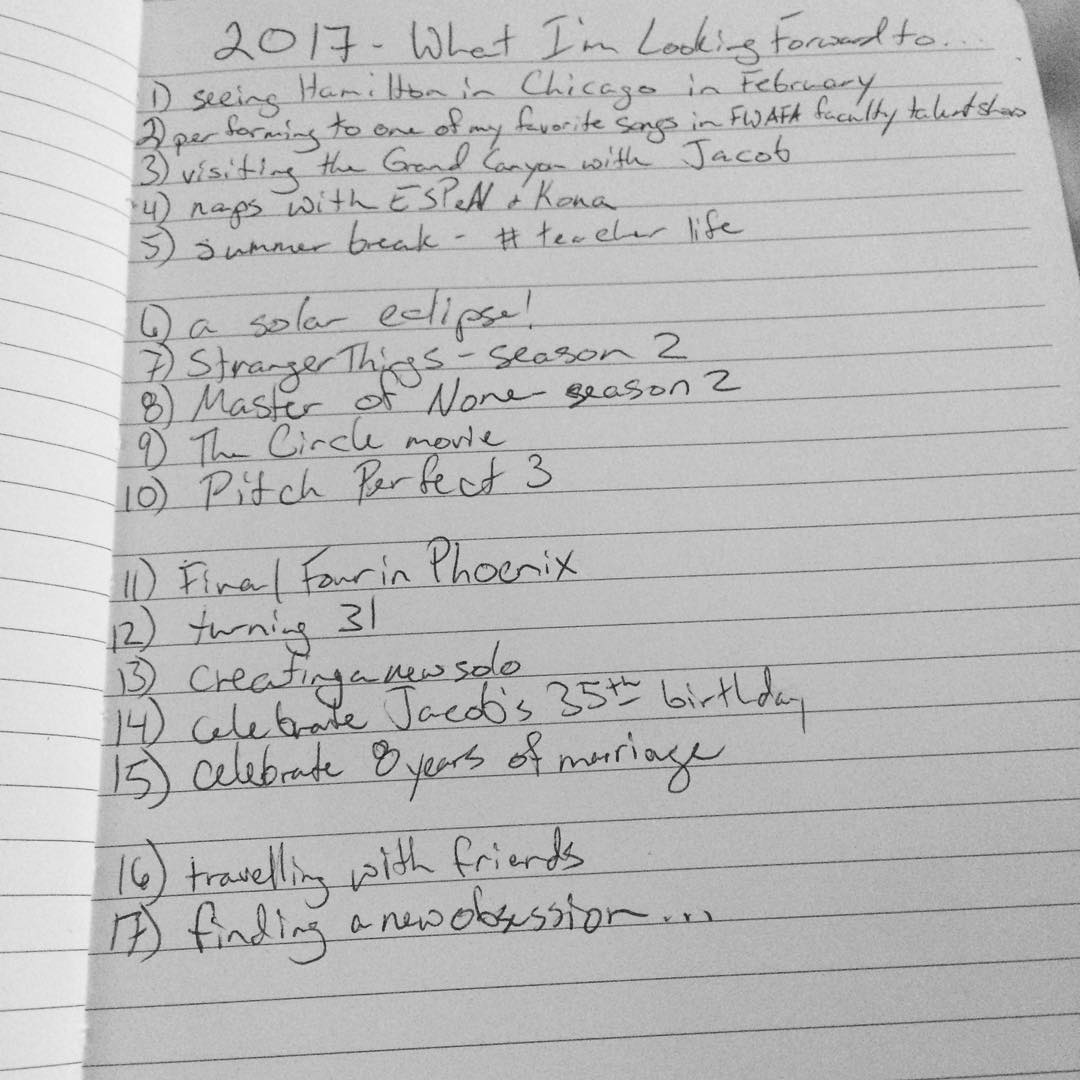 2017 - What I'm Looking Forward to...
1) seeing Hamilton in Chicago in February
2) performing to one of my favorite songs in FWAFA faculty talent show
3) visiting the Grand Canyon with Jacob
4) naps with ESPeN + Kona
5) summer break - # teacher life
6) a solar eclipse!
7) Stranger Things - season 2
8) Master of None - season 2
9) The Circle movie
10) Pitch Perfect 3
11) Final Four in Phoenix
12) turning 31
13) creating a new solo
14) celebrate Jacob's 35th birthday
15) celebrate 8 years of marriage
16) travelling with friends
17) finding a new obsession...